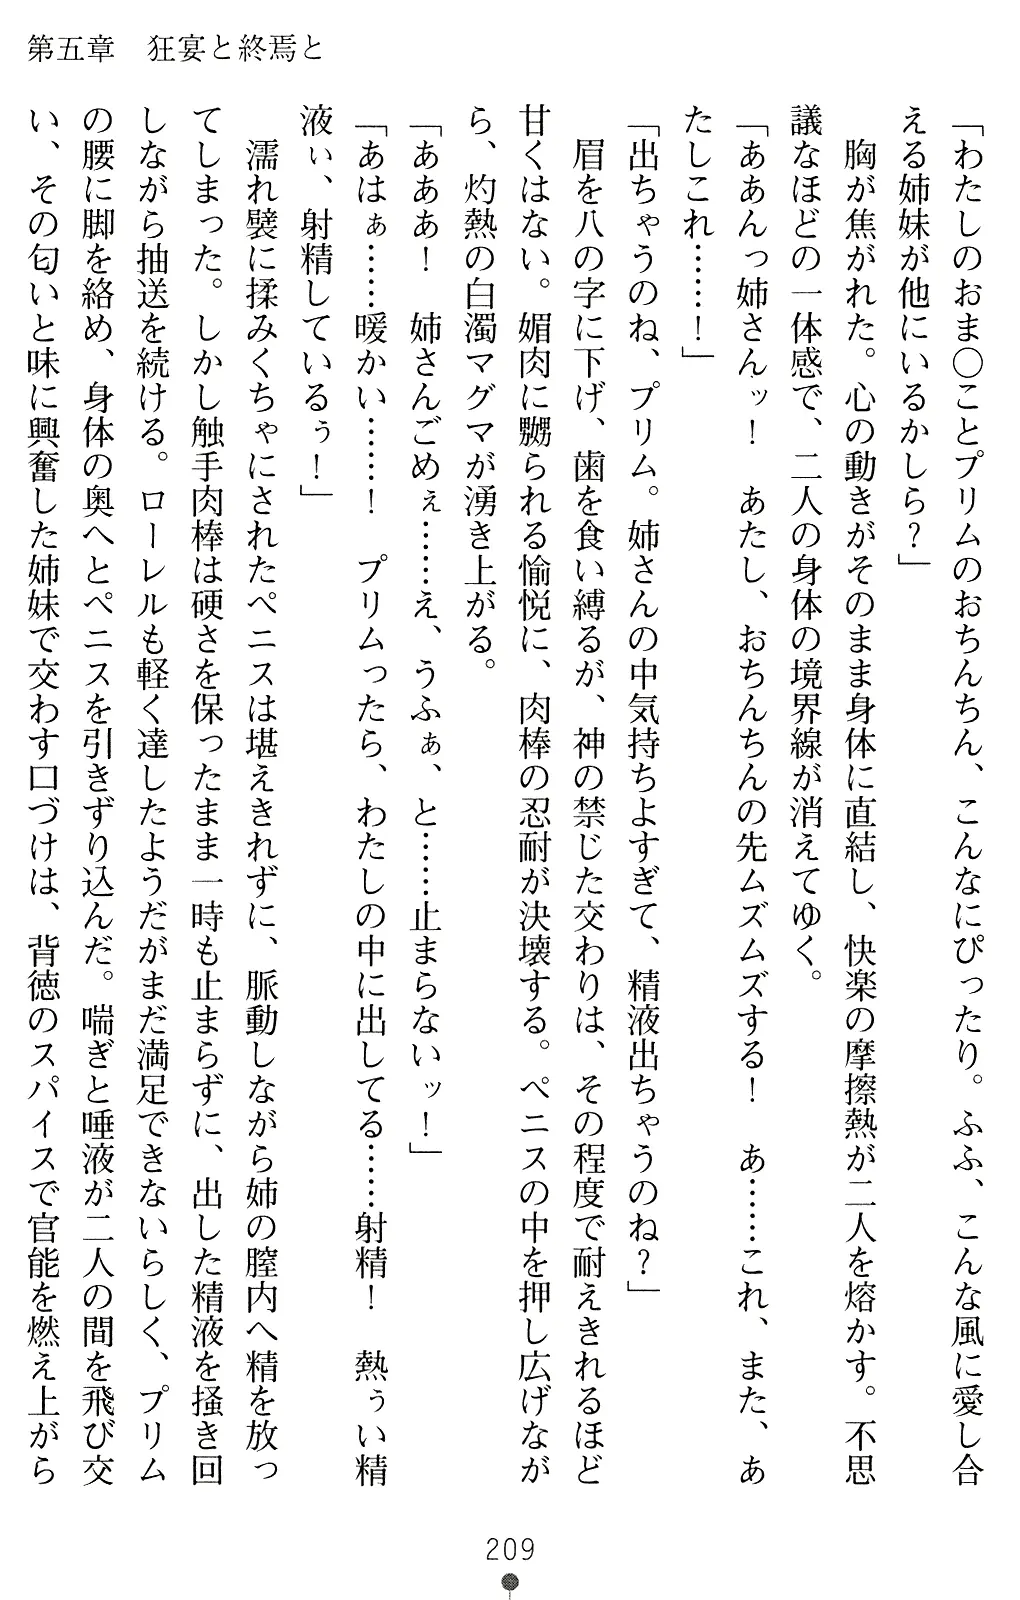 第五章　狂宴と終焉と
「わたしのおま〇ことプリムのおちんちん、こんなにぴったり。ふふ、こんな風に愛し合
える姉妹が他にいるかしら？」
　胸が焦がれた。心の動きがそのまま身体に直結し、快楽の摩擦熱が二人を熔かす。不思
議なほどの一体感で、二人の身体の境界線が消えてゆく。
「ああんっ姉さんッ！　あたし、おちんちんの先ムズムズする！　あ……これ、また、あ
たしこれ……！」
「出ちゃうのね、プリム。姉さんの中気持ちよすぎて、精液出ちゃうのね？」
　眉を八の字に下げ、歯を食い縛るが、神の禁じた交わりは、その程度で耐えきれるほど
甘くはない。媚肉に嬲られる愉悦に、肉棒の忍耐が決壊する。ペニスの中を押し広げなが
ら、灼熱の白濁マグマが湧き上がる。
「あああ！　姉さんごめぇ……え、うふぁ、と……止まらないッ！」
「あはぁ……暖かい……！　プリムったら、わたしの中に出してる……射精！　熱ぅい精
液ぃ、射精しているぅ！」
　濡れ襞に揉みくちゃにされたペニスは堪えきれずに、脈動しながら姉の膣内へ精を放っ
てしまった。しかし触手肉棒は硬さを保ったまま一時も止まらずに、出した精液を掻き回
しながら抽送を続ける。ローレルも軽く達したようだがまだ満足できないらしく、プリム
の腰に脚を絡め、身体の奥へとペニスを引きずり込んだ。喘ぎと唾液が二人の間を飛び交
い、その匂いと味に興奮した姉妹で交わす口づけは、背徳のスパイスで官能を燃え上がら
209